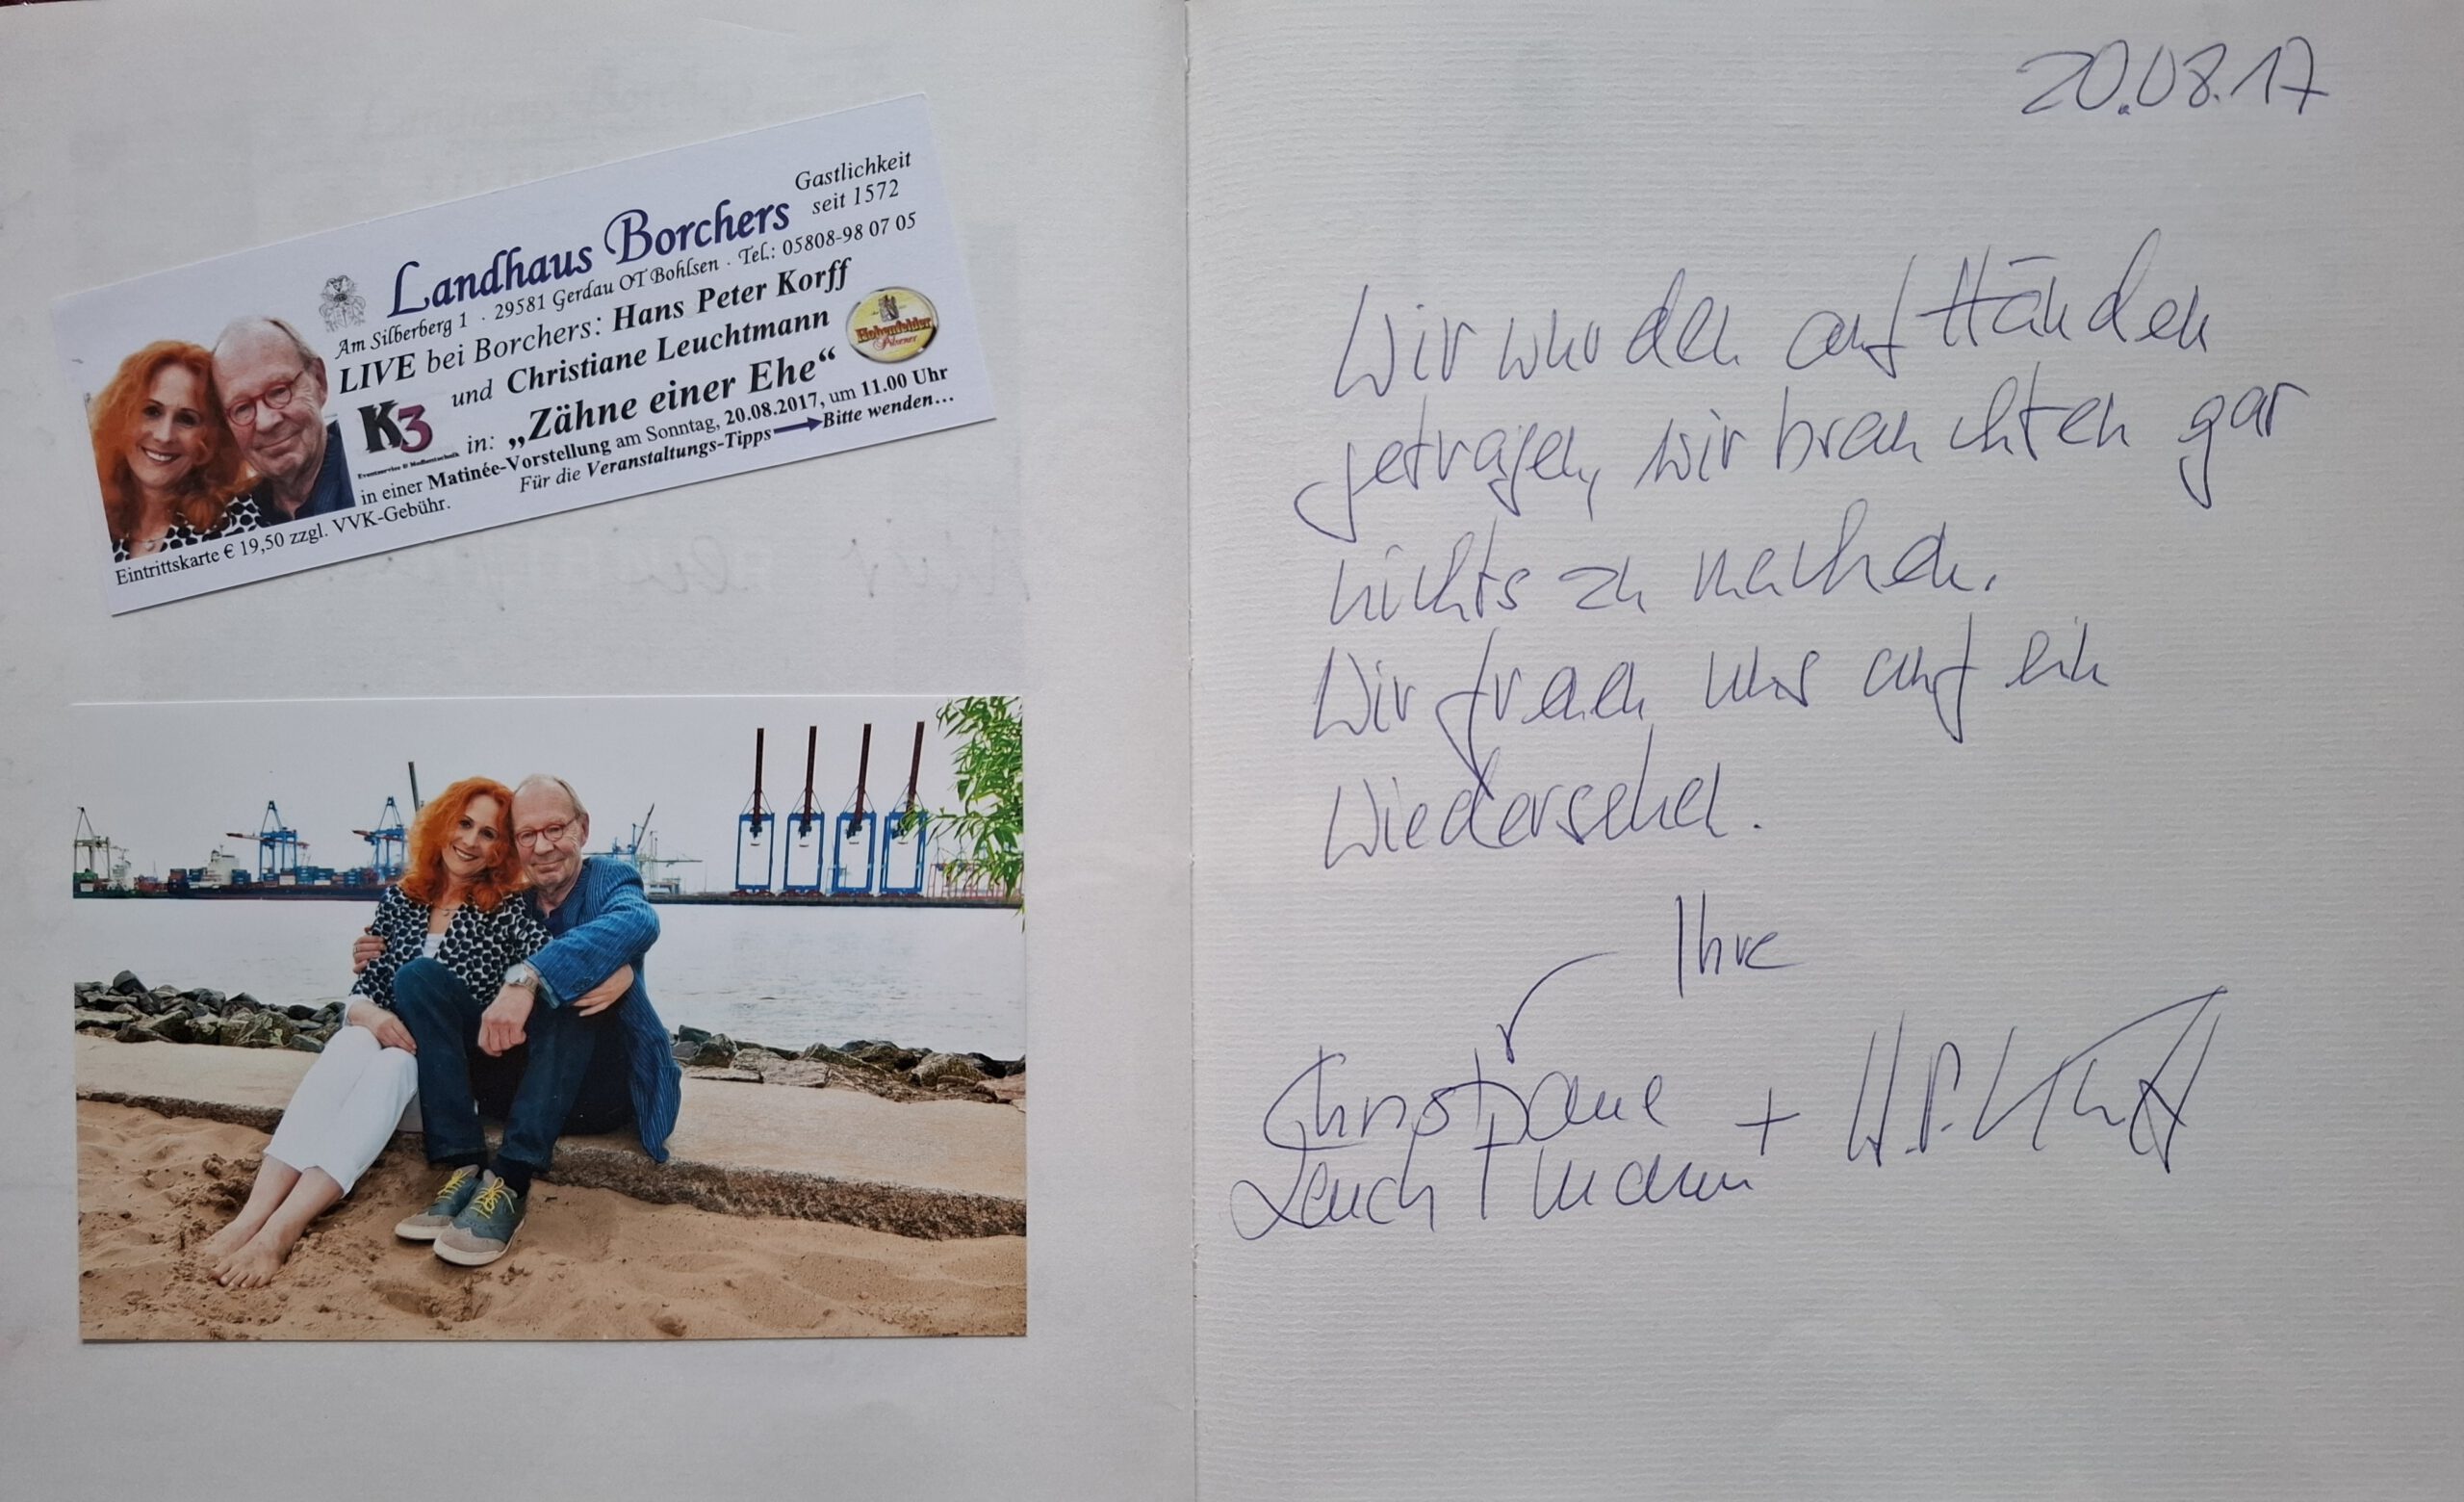 Gastlichkeit
seit 1572
Landhaus Borchers
Am Silberberg 1 · 29581 Gerdau OT Bohlsen · Tel.: 05808-98 07 05
LIVE bei Borchers: Hans Peter Korff
und Christiane Leuchtmann
Hohenfelder
Pilsener
K3
Eventservice & Medientechnik
in: „Zähne einer Ehe“
in einer Matinée-Vorstellung am Sonntag, 20.08.2017, um 11.00 Uhr
Für die Veranstaltungs-Tipps Bitte wenden...
Eintrittskarte € 19,50 zzgl. VVK-Gebühr.
20.08.17
Wir wurden auf Händen
getragen, wir brauchten gar
nichts zu machen.
Wir freuen uns auf ein
Wiedersehen.
Ihre
Christiane + H.P. Korff
Leuchtmann